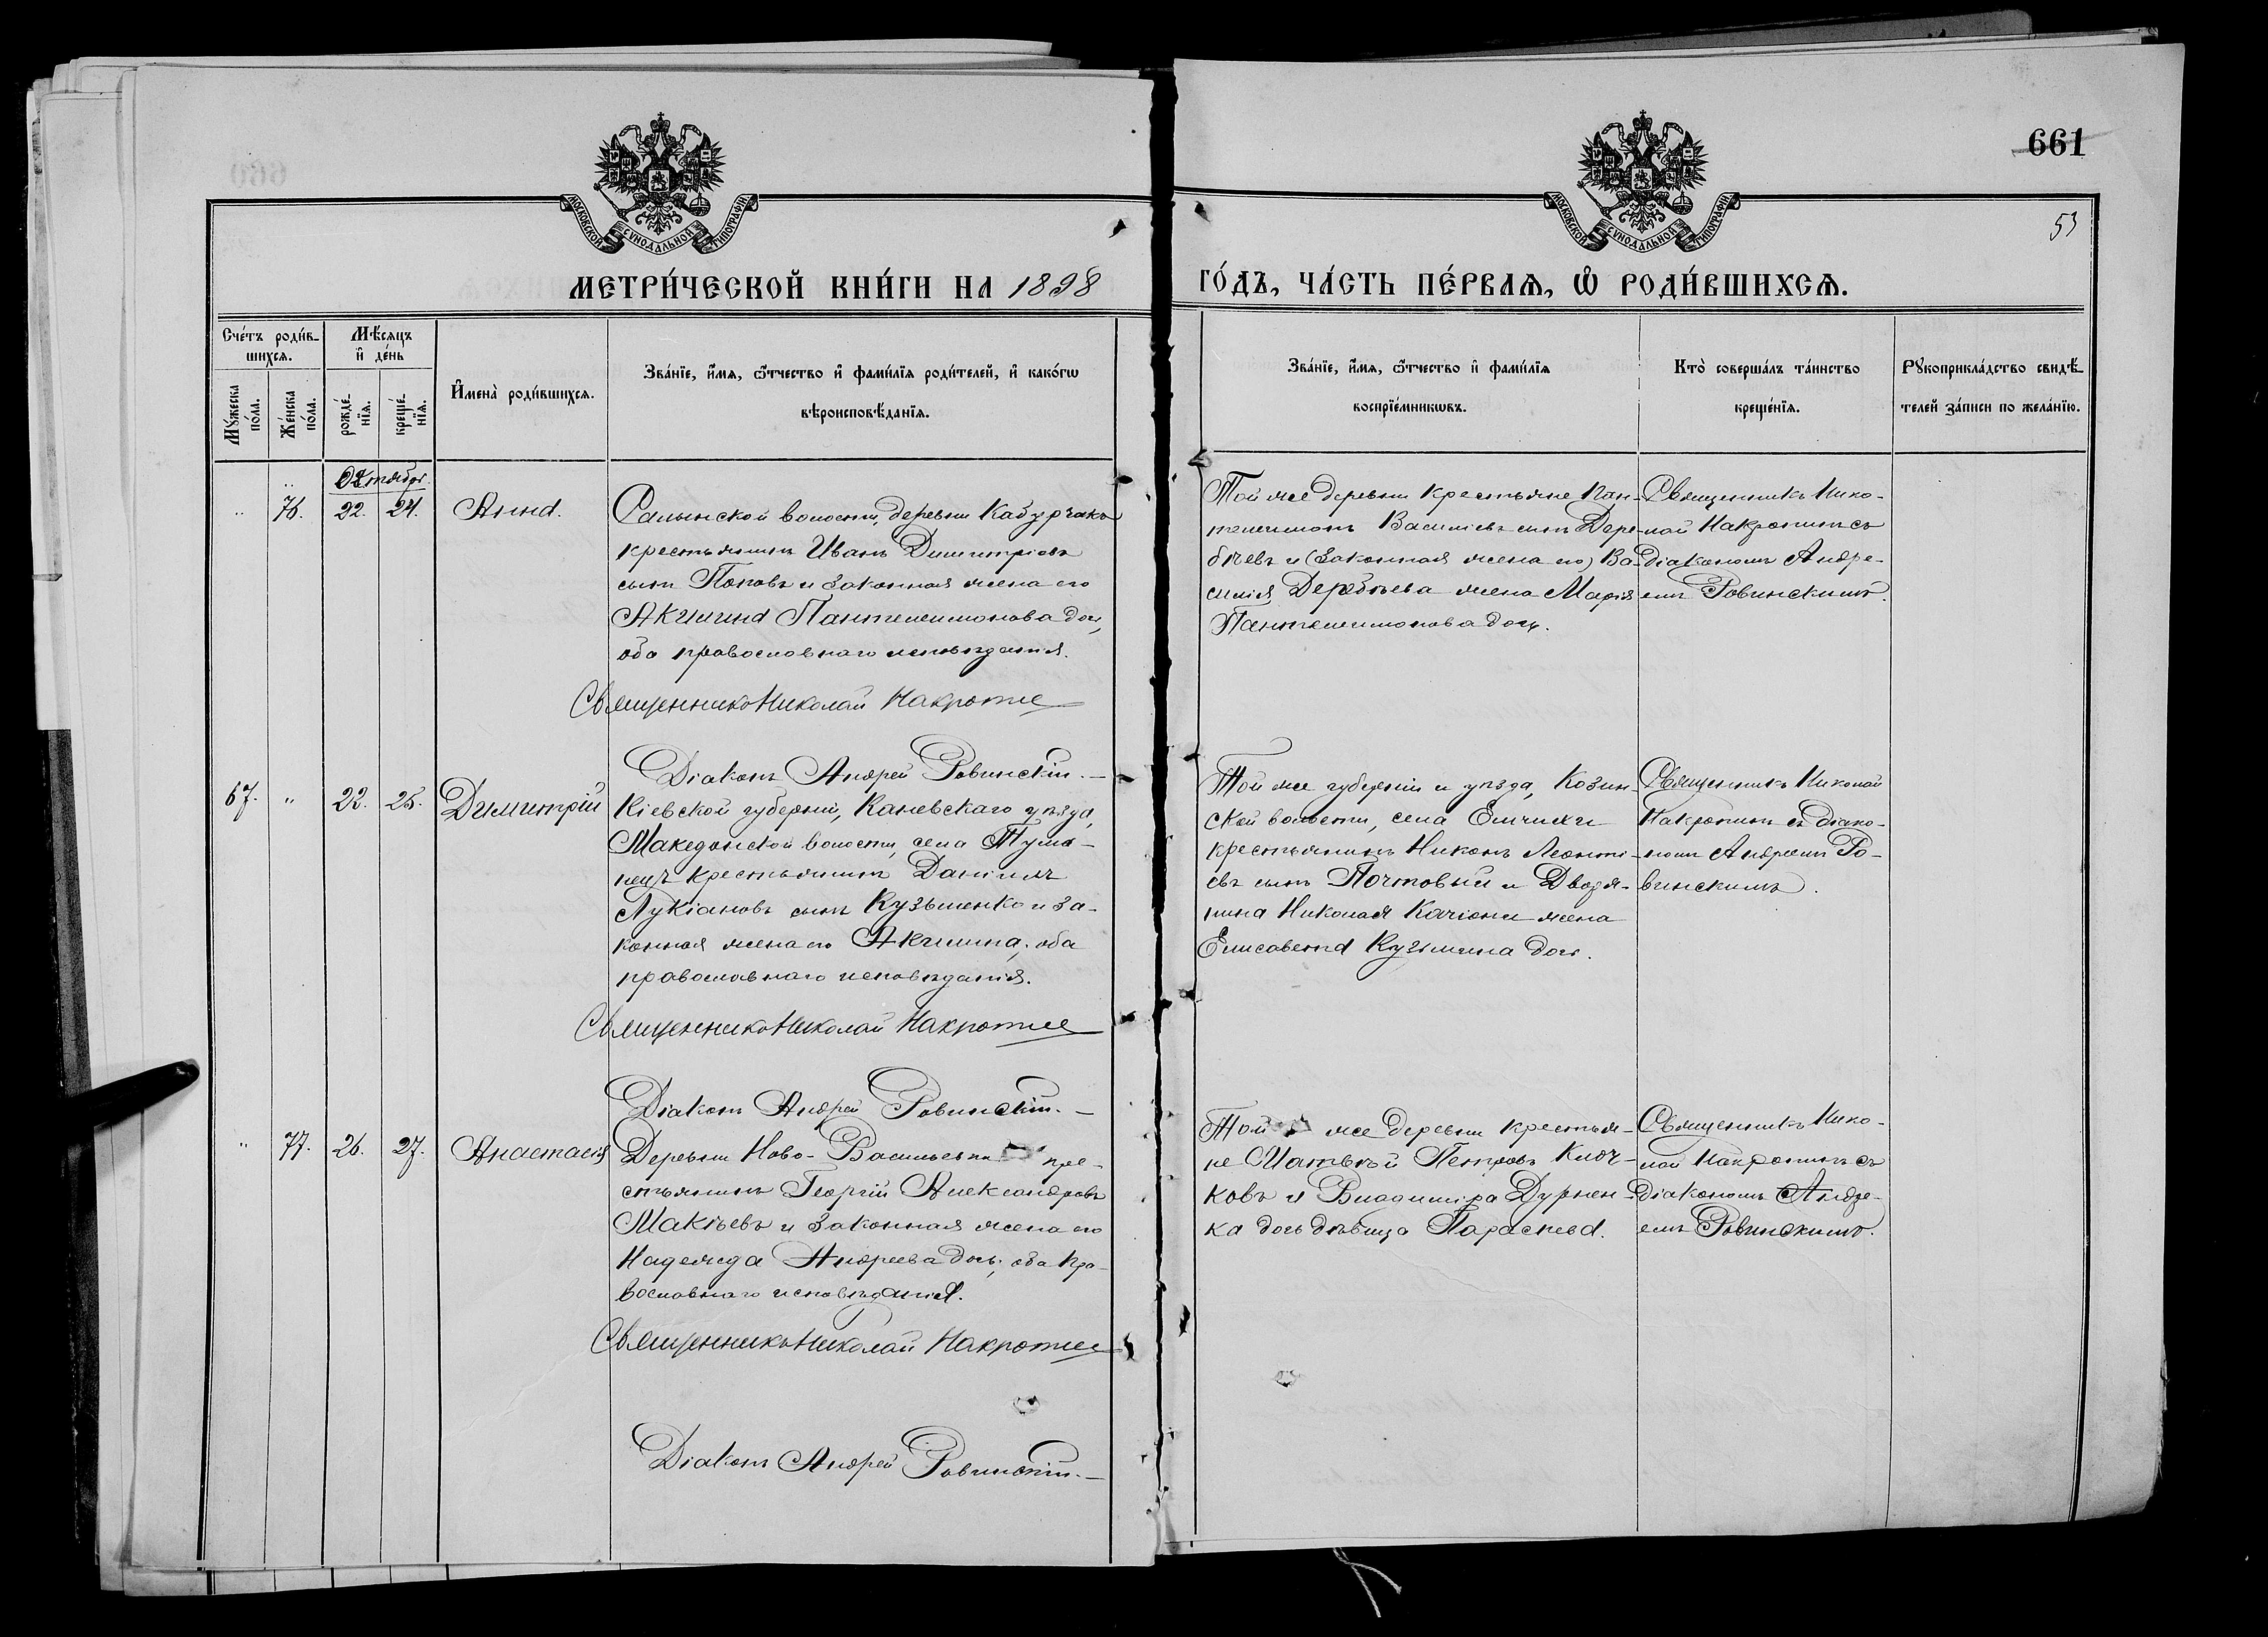 661
53
МОСКОВСКОЙ СѴНОДАЛЬНОЙ ТИПОГРАФІИ
МОСКОВСКОЙ СѴНОДАЛЬНОЙ ТИПОГРАФІИ
МЕТРИ́ЧЕСКОЙ КНИ́ГИ НА 1898
ГО́ДЪ, ЧА́СТЬ ПЕ́РВАѦ, Ѡ РОДИ́ВШИХСѦ.
Сче́тъ роди́в-
шихся.
Мꙋ́жеска
по́ла.
Же́нска
по́ла.
Мѣ́сяцъ
и де́нь
рожде́-
нїя.
креще́-
нїя.
Имена̀ роди́вшихся.
Зва́нїе, имя, ѻтчество и фами́лїя роди́телей, и како́гѡ
вѣроисповѣ́данїя.
Зва́нїе, имя, ѻтчество и фами́лїя
воспрїе́мникѡвъ.
Кто̀ соверша́лъ та́инство
креще́нїя.
Рꙋкоприкла́дство свидѣ́-
телей за́писи по жела́нїю.
Октября
" 76. 22. 24. Анна.
Салынской волости, деревни Кабурчакъ
крестьянинъ Иванъ Димитріевъ
сынъ Поповъ и законная жена его
Акилина Пантелеимонова дочь,
оба православнаго исповѣданія.
Священникъ Николай Накропин
Діаконъ Андрей Ровинскій.—
Той же деревни крестьяне Пан-
телеимонъ Василіевъ сынъ Дере-
бѣевъ и (законная жена его) Ва-
силія Деребѣева жена Марія
Пантелеимонова дочь.
Священникъ Нико-
лай Накропинъ съ
діакономъ Андре-
емъ Ровинскимъ.
67. " 22. 25. Димитрій
Кіевской губерніи, Каневскаго уѣзда,
Македонской волости, села Тума-
нецъ крестьянинъ Даніилъ
Лукіановъ сынъ Кузьменко и за-
конная жена его Акилина, оба
православнаго исповѣданія.
Священникъ Николай Накропин
Діаконъ Андрей Ровинскій.—
Той же губерніи и уѣзда, Козин-
ской волости, села Емчихи
крестьянинъ Никонъ Леонті-
евъ сынъ Почтовый и Дворя-
нина Николая Качіони жена
Елисавета Кузьмина дочь.
Священникъ Николай
Накропинъ съ діако-
номъ Андреемъ Ро-
винскимъ.
" 77. 26. 27. Анастасія
Деревни Ново-Васильевки кре-
стьянинъ Георгій Александровъ
Макѣевъ и законная жена его
Надежда Андреева дочь, оба пра-
вославнаго исповѣданія.
Священникъ Николай Накропин
Діаконъ Андрей Ровинскій.—
Той же деревни крестья-
не Матвѣй Петровъ Ключ-
ковъ и Владиміра Дурнен-
ка дочь дѣвица Параскева.
Священникъ Нико-
лай Накропинъ съ
діакономъ Андре-
емъ Ровинскимъ.